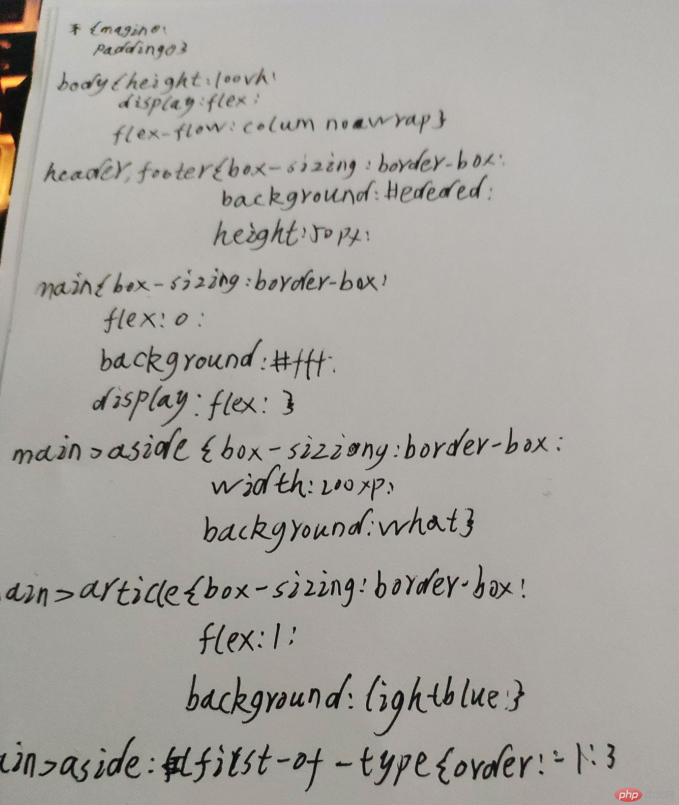 * {magin0:
padding0}
body{height:100vh:
display:flex:
flex-flow:colum nowrap}
header,footer{box-sizing:border-box:
background:#ededed:
height:50px:
main{box-sizing:border-box:
flex:0:
background:#fff:
display:flex:}
main>aside{box-siziong:border-box:
width:200xp:
background:what}
ain>article{box-sizing:border-box:
flex:1:
background:lightblue:}
in>aside:first-of-type{order:-1:}
php